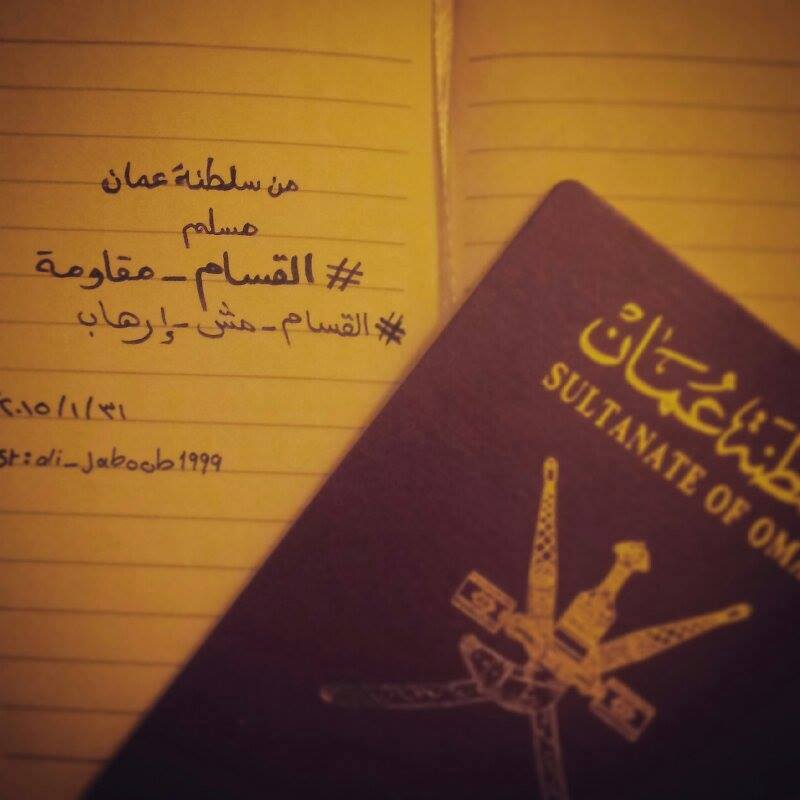 من سلطنة عمان
مسلم
#القسام_مقاومة
#القسام_مش_إرهاب
٢٠١٥/١/٣١
st:ali_Jaboob1999
سلطنة عُمان
SULTANATE OF OMA